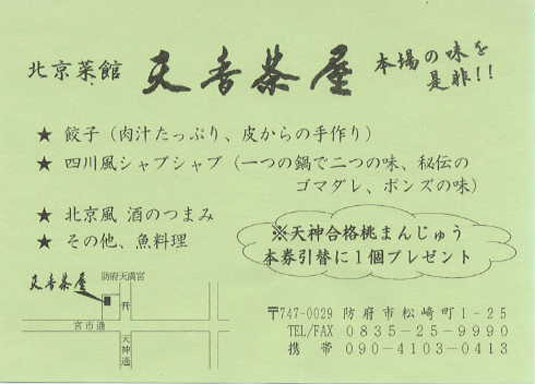 北京菜館 天香茶屋 本場の味を
是非!!
★ 餃子（肉汁たっぷり、皮からの手作り）
★ 四川風シャブシャブ（一つの鍋で二つの味、秘伝の
ゴマダレ、ポンズの味）
★ 北京風 酒のつまみ
★ その他、魚料理
※天神合格桃まんじゅう
本券引替に1個プレゼント
天香茶屋
防府天満宮
宮市通
天神通
〒747-0029 防府市松崎町1-25
TEL/FAX 0835-25-9990
携 帯 090-4103-0413